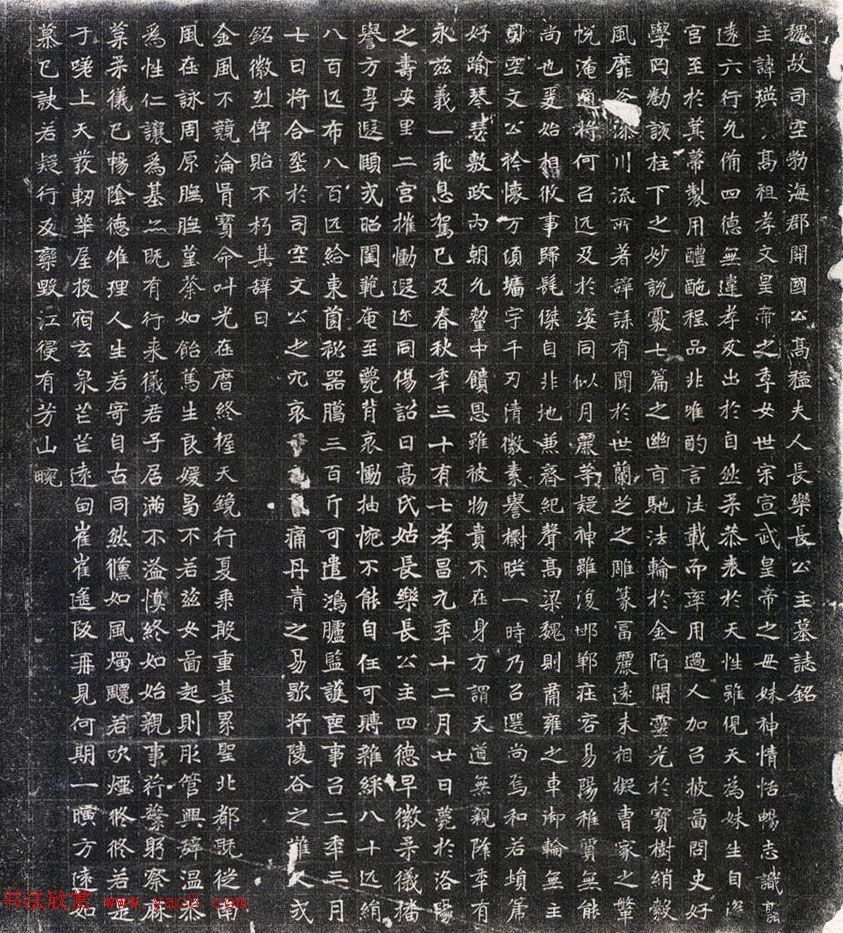 魏故司空勃海郡開國公高猛夫人長樂長公主墓誌銘
主諱瑛高祖孝文皇帝之季女世宗宣武皇帝之母妹神情恬暢志識高
遠六行允備四德無違孝友出於自然柔恭表於天性雖俔天為妹生自深
宮至於箕帚製用醴酏程品非唯酌言往載而率用過人加召披啚問史好
學罔勌該柱下之妙說覈七篇之幽旨馳法輪於金陌開靈光於寶樹綃縠
風靡斧藻川流所著辭誄有聞於世蘭芝之雕篆富麗遠未相擬曹家之謦
悅淹通將何召远及於姿同似月麗等疑神雖復邯鄲莊容易陽稚質無能
尚也爰始相攸事歸髦傑自非地兼齊紀聲高梁魏則肅雍之車御輪無主
司空文公衿懷万頃墻宇千刃清徽素譽櫬暎一時乃召選尚焉和若塤箎
好踰琴瑟敷政內朝允釐中饋恩雖被物貴不在身方謂天道無親降秊有
永茲義一乖息駕已及春秋秊三十有七孝昌元秊十二月廿日薨於洛陽
之壽安里二宮摧慟遐迩同傷詔曰高氏姑長樂長公主四德早徽柔儀播
譽方享遐頤式昭閨範奄至薨背哀慟抽惋不能自任可賻雜綵八十匹絹
八百匹布八百匹給東茵祕器臈三百斤可遣鴻臚監護喪事召二秊三月
七日將合塟於司空文公之穴哀痛丹青之易歇將陵谷之難久式
銘徽烈俾貽不朽其辭曰
金風不競淪胥寶命叶光在曆終握天鏡行夏乘殷重基累聖北都既從南
風在詠周原膴膴堇荼如飴篤生良媛曷不若茲女啚起則彤管興辞温恭
為性仁讓為基亦既有行來儀君子居滿不溢慎終如始親事荇蘩躬察麻
枲柔儀已暢陰德維理人生若寄自古同然儵如風燭飈若吹煙悠悠若是
于嗟上天發軔華屋投宿玄泉芒芒遠甸崔崔遙阪再見何期一曠方遠如
慕已訣若疑行反欒毀江侵有芳山畹
书法欣赏 www.yac8.com